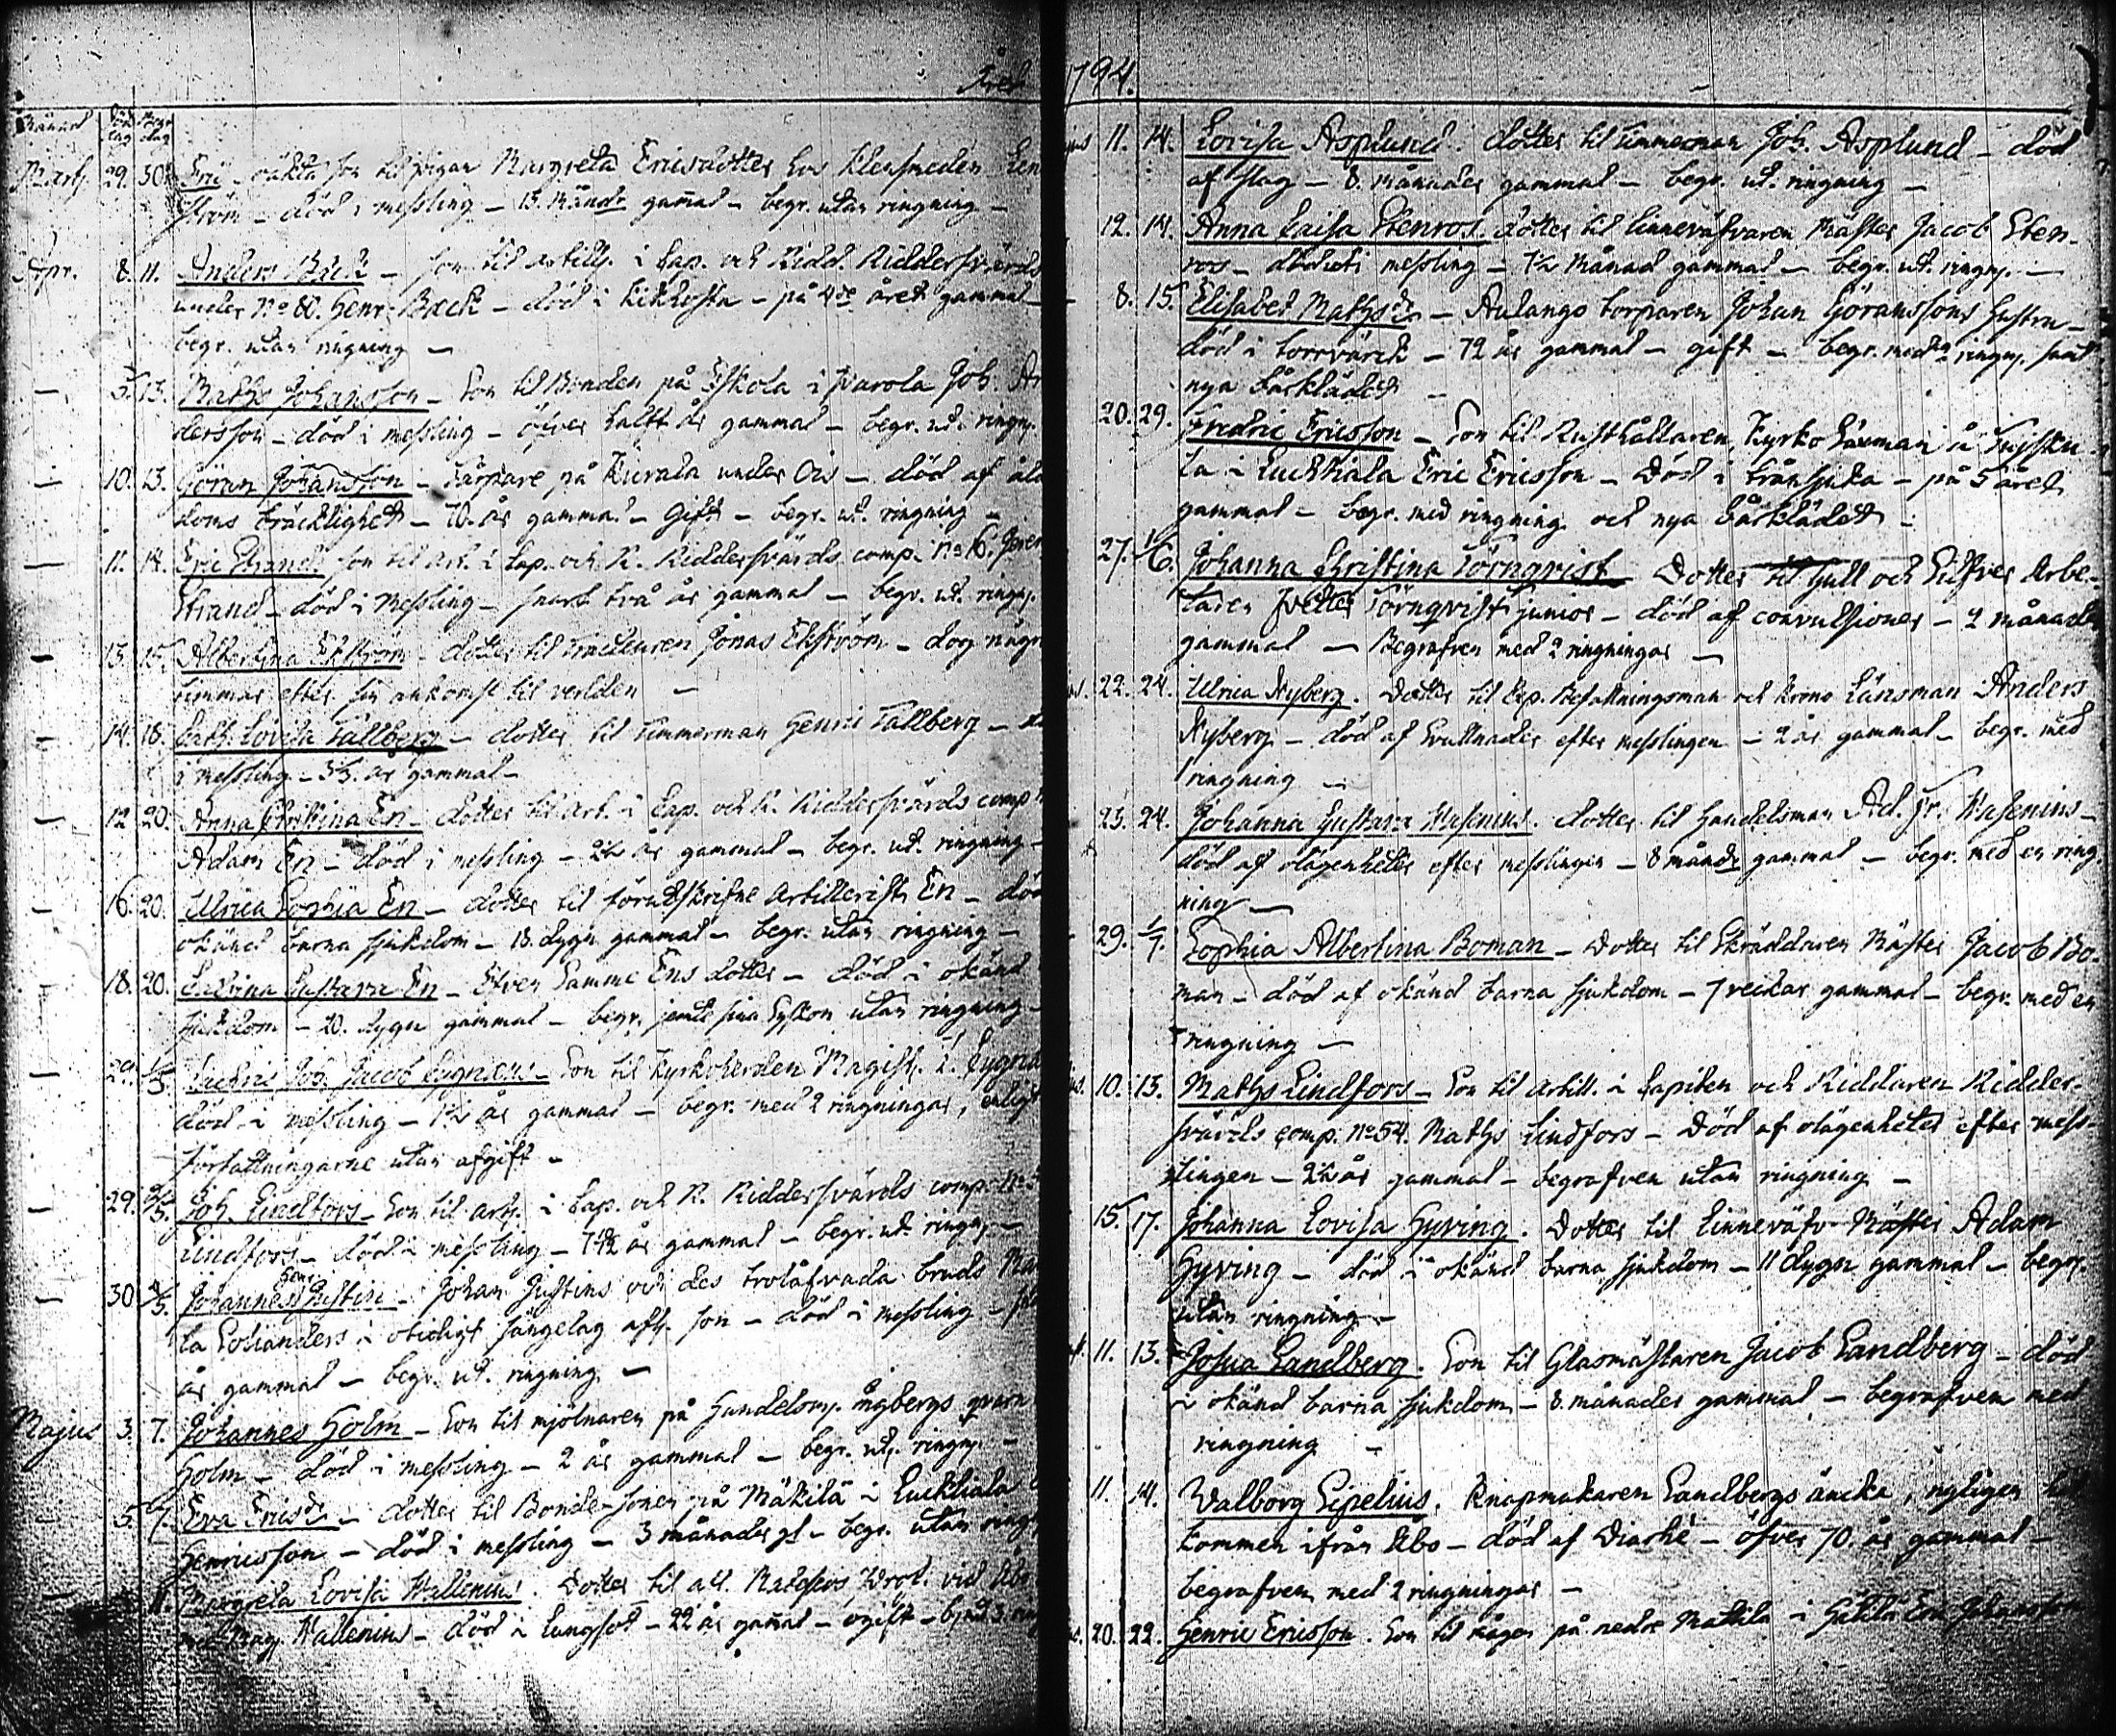 Året
Månad Död dag Begr dag
Mart. 29. 30. Eric - oäkta son til pigan Margreta Ericsdotter hos Klensmeden
ström - död i messling - 13. månadr gamal - begr. utan ringning -
Apr. 8. 11. Anders Bäck - son til artill. i Cap. och Ridd. Riddersvärds
under No 80. Henr. Bäck - död i kikhosta - på 4de året gammal -
begr. utan ringning -
- 5. 13. Maths Johansson - Son til Bonden på Eskola i Joh. An
dersson - död i messling - öfver halft år gammal - begr. ut. ringn.
- 10. 13. Göran Johansson - på under Ois - död af ålder
doms bräcklighet - 70. år gammal - Gift - begr. ut. ringning -
- 11. 14. Eric Strand. son til Art. i Cap. och R. Riddersvärds comp. No 16.
Strand - död i messling - snart två år gammal - begr. ut. ringn.
- 13. 15. Albertina Ekström - dotter til Jonas Ekström - dog några
timmar efter sin ankomst til verlden -
- 14. 18. Cath. Lovisa Tallberg - dotter til timmerman Henric Tallberg -
i messling - 3⅓ år gammal -
- 12 20. Anna Christina En - dotter til Art. i Cap. och R. Riddersvärds comp
Adam En - död i messling - 2½ år gammal - begr. ut. ringning -
- 16. 20. Ulrica Sophia En - dotter til förutskrifne Artillerist En - död
okänd barna sjukdom - 18. dygn gammal - begr. utan ringning -
- 18. 20. Gustava En - Äfven Samme Ens dotter - död i okänd
sjukdom - 20. dygn gammal - begr. jemte sina Syskon utan ringning -
- 29. 1/5. Joh. Jacob Cygnæus - Son til Kyrkoherden Magist.
död i messling - 1½ år gammal - begr. med 2 ringningar, enligt
författningarne utan afgift -
- 29. 2/5. Joh. Lindfors - Son til art. i Cap. och R. Riddersvärds comp. No
Lindfors - död i messling - år gammal - begr. ut. ringn. -
- 30 4/5. Johannes Henr. Justin - Johan Justins och des trolofvade bruds
ta i otidigt sängelag afl. son - död i messling -
år gammal - begr. ut. ringning -
Majus 3. 7. Johannes Holm - Son til mjölnaren på Handelsm. qvarn
Holm - död i messling - 2 år gammal - begr. ut. ringn. -
- 5. 7. Eva Ericsdr - dotter til Bonde Sonen på Mäkilä i Luckhiala
Henricsson - död i messling - 3 månader gl - begr. utan ringn
11. Margreta Lovisa Wallenius. Dotter til vid Åbo
Mag. Wallenius - död i lungsot - 22 år gamal - ogift -
1794.
11. 14. Lovisa Asplund. dotter til timmerman Joh. Asplund - död
af slag - 8. månader gammal - begr. ut. ringning -
12. 14. Anna Caisa Stenros dotter til Linnevävaren Mäster Jacob Sten-
ros - död uti messling - 1½ Månad gammal - begr. ut. ringn. -
- 8. 15. Elisabet Mathsdr - Aulango torparen Johan Göranssons hustru -
död i torrvärck - 72 år gammal - gift - begr. med 2 ringn. samt
nya bårklädet -
20. 29. Fredric Ericsson - Son til Rusthållaren, Kyrko Läxman å
la i Luckhiala Eric Ericsson - Död i trånsjuka - på 5 året
gammal - begr. med ringning och nya bårklädet -
27. 1/6. Johanna Christina Törnqvist Dotter til Gull och Silfver Arbe-
taren Petter Törnqvist Junior - död af convulsioner - 2 månader
gammal - Begrafven med 2 ringningar -
22. 24. Ulrica Nyberg. Dotter til Exp. Befallningsman och krono Länsman Anders
Nyberg - död af Svullnader efter messlingen - 2 år gammal - begr. med
ringning -
23. 24. Johanna Gustava Wasenius. dotter til Handelsman Ad. Fr. Wasenius -
död af olägenheter efter messlingen - 8 månadr gammal - begr. med en ring
ning -
29. 1/7. Sophia Albertina Boman - Dotter til Skräddaren Mäster Jacob Bo-
man - död af okänd barna sjukdom - 7 veckar gammal - begr. med en
ringning -
10. 13. Maths Lindfors - Son til artill. i Capiten och Riddaren Ridder-
svärds comp. No 54. Maths Lindfors - Död af olägenheter efter mess-
lingen - 2½ år gammal - begrafven utan ringning -
15. 17. Johanna Lovisa Hyving. Dotter til Linneväfv. Mäster Adam
Hyving - död i okänd barna sjukdom - 11 dygn gammal - begr.
utan ringning -
11. 13. Josua Sandberg. Son til Glasmästaren Jacob Sandberg - död
i okänd barna sjukdom - 8. månader gammal - begrafven med
ringning -
11. 14. Walborg Sipelius. Knapmakaren Sandbergs äncka, nyligen hit
kommen ifrån Åbo - död af Diarhé - öfver 70. år gammal -
begrafven med 2 ringningar -
20. 22. Henric Ericsson. Son til på nedre Mattila i Hätilä Eric Johansson